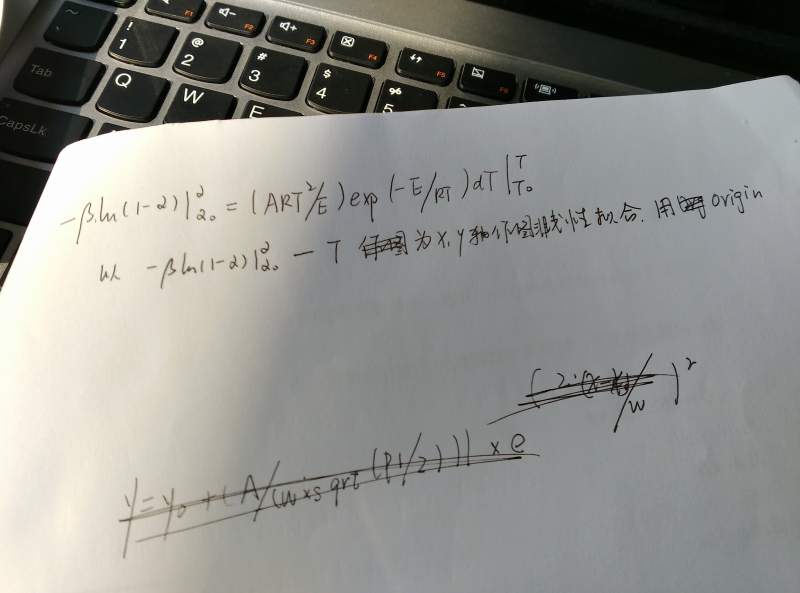 F1
F2
F3
F4
F5
~
`
!
1
@
2
#
3
$
4
%
5
Tab
Q
W
E
CapsLk
-βln(1-α)|α α₀ = (ART²/E)exp(-E/RT)dT|T T₀
以 -βln(1-α)|α α₀ — T 为X,Y轴作图非线性拟合. 用 origin
(2·(x-x₀)/w)²
y=y₀+(A/(w×sqrt(PI/2)))×e